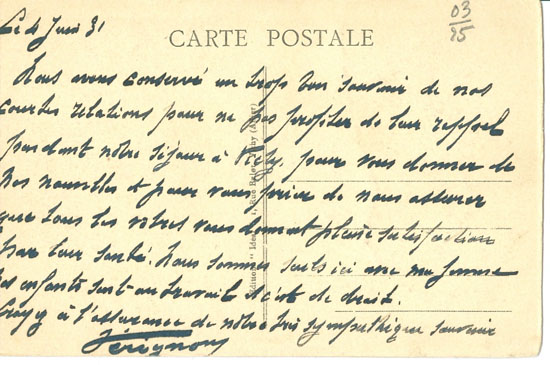 Le 4 Juin 31
03
25
CARTE POSTALE
Nous avons conservé un trop bon souvenir de nos
courtes relations pour ne pas profiter de leur rappel
pendant notre séjour à Vichy, pour vous donner de
nos nouvelles et pour vous prier de nous assurer
que tous les vôtres vous donnent pleine satisfaction
par leur santé. Nous sommes seuls ici avec ma femme
les enfants sont au travail et c'est de droit.
Croyez à l'assurance de notre très sympathique souvenir